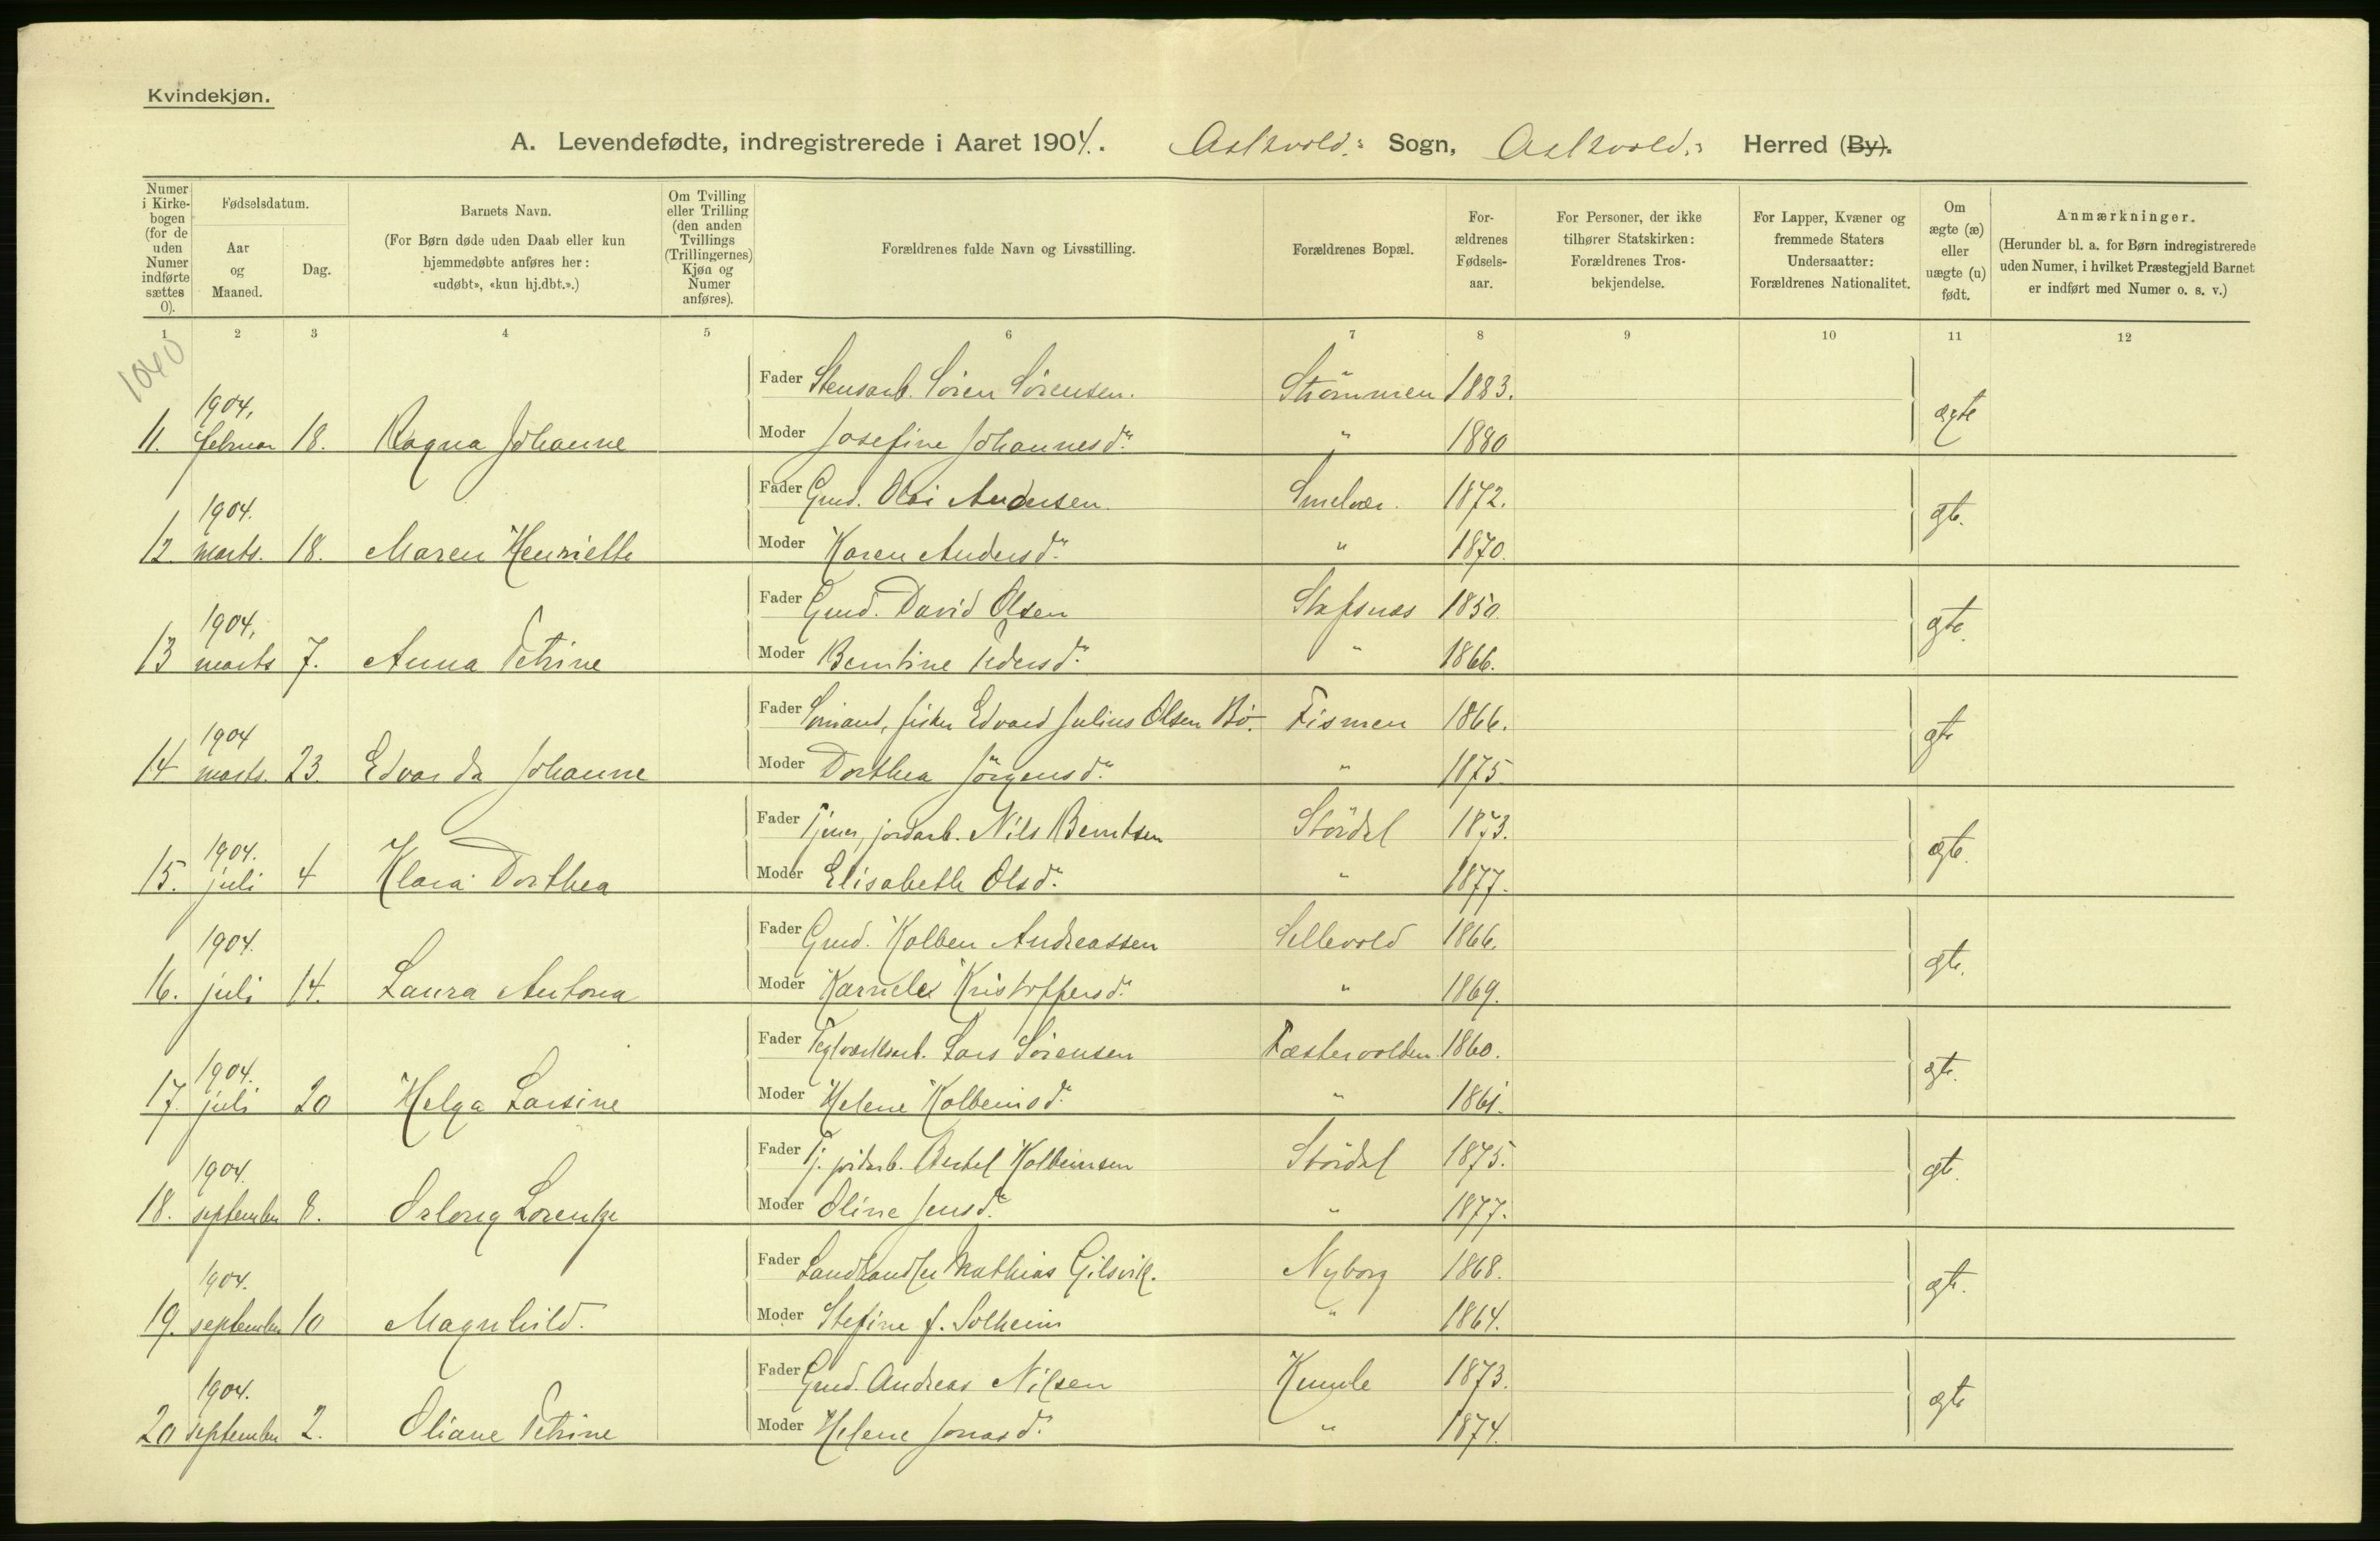 Kvindekjøn.
A. Levendefødte, indregistrerede i Aaret 1904. Askvold: Sogn, Askvold: Herred (By).
Numer i Kirke-bogen (for de uden Numer indførte sættes 0).
Fødselsdatum.
Aar og Maaned.
Dag.
Barnets Navn.
(For Børn døde uden Daab eller kun hjemmedøbte anføres her: «udøbt», «kun hj.dbt.».)
Om Tvilling eller Trilling (den anden Tvillings (Trillingernes) Kjøn og Numer anføres).
Forældrenes fulde Navn og Livsstilling.
Forældrenes Bopæl.
For-ældrenes Fødsels-aar.
For Personer, der ikke tilhører Statskirken: Forældrenes Tros-bekjendelse.
For Lapper, Kvæner og fremmede Staters Undersaatter: Forældrenes Nationalitet.
Om ægte (æ) eller uægte (u) født.
Anmærkninger.
(Herunder bl. a. for Børn indregistrerede uden Numer, i hvilket Præstegjeld Barnet er indført med Numer o. s. v.)
1 2 3 4 5 6 7 8 9 10 11 12
1040
Fader Stensarb. Sören Sörensen. Strömmen 1883.
1904,
11. februar 18. Ragna Johanne Moder Josefine Johannesdr. " 1880 ægte
Fader Gmd. Olai Andersen. Smelvær. 1872.
1904.
12. marts. 18. Maren Henriette Moder Karen Andersdr. " 1870. gte.
Fader Gmd. David Olsen Stafsnes 1850.
1904,
13 marts 7. Anna Petrine Moder Berntine Pedersdr. " 1866. gte.
Fader Sömand, fisker Edvard Julius Olsen Bö. Tismen 1866.
1904
14 marts. 23. Edvarda Johanne Moder Dorthea Jörgensdr. " 1875 gte
Fader Tjener, jordarb. Nils Berntsen Stördal 1873.
1904.
15. juli 4 Klara Dorthea Moder Elisabeth Olsdr. " 1877. ægte.
Fader Gmd. Kolben Andreassen Sellevold 1866.
1904.
16. juli 14. Laura Antona Moder Karnele Kristoffersdr. " 1869. gte.
Fader Teglværksarb. Lars Sörensen Fæstervolden 1860.
1904.
17. juli 20 Helga Larsine Moder Helene Kolbeinsdr. " 1861. gte.
Fader Tj. jordarb. Bertel Kolbeinsen Stördal 1875.
1904.
18. september 8. Lorentze Moder Oline Jensdr. " 1877. gte.
Fader Landhandler Mathias Gilsvik. Nyborg 1868.
1904.
19. september 10 Magnhild. Moder Stefine f. Solheim " 1864. gte.
Fader Gmd. Andreas Nilsen Kumle 1873.
1904.
20 september 2. Oliane Petrine Moder Helene Jonasdr. " 1874. gte